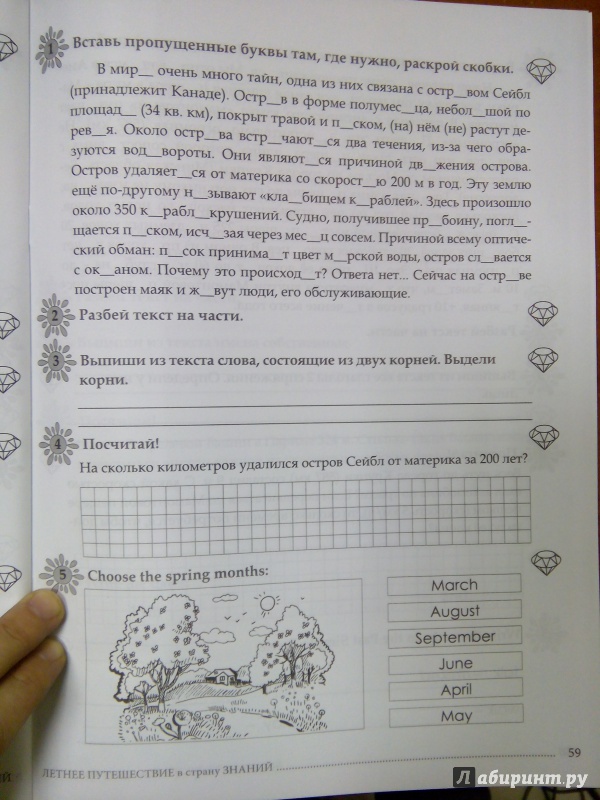 1 Вставь пропущенные буквы там, где нужно, раскрой скобки.
В мир__ очень много тайн, одна из них связана с остр__вом Сейбл
(принадлежит Канаде). Остр__в в форме полумес__ца, небол__шой по
площад__ (34 кв. км), покрыт травой и п__ском, (на) нём (не) растут де-
рев__я. Около остр__ва встр__чают__ся два течения, из-за чего обра-
зуются вод__вороты. Они являют__ся причиной дв__жения острова.
Остров удаляет__ся от материка со скорост__ю 200 м в год. Эту землю
ещё по-другому н__зывают «кла__бищем к__раблей». Здесь произошло
около 350 к__рабл__крушений. Судно, получившее пр__боину, погл__-
щается п__ском, исч__зая через мес__ц совсем. Причиной всему оптиче-
ский обман: п__сок принима__т цвет м__рской воды, остров сл__вается
с ок__аном. Почему это происход__т? Ответа нет... Сейчас на остр__ве
построен маяк и ж__вут люди, его обслуживающие.
2 Разбей текст на части.
3 Выпиши из текста слова, состоящие из двух корней. Выдели
корни.
4 Посчитай!
На сколько километров удалился остров Сейбл от материка за 200 лет?
5 Choose the spring months:
March
August
September
June
April
May
59
ЛЕТНЕЕ ПУТЕШЕСТВИЕ в страну ЗНАНИЙ
Лабиринт.ру